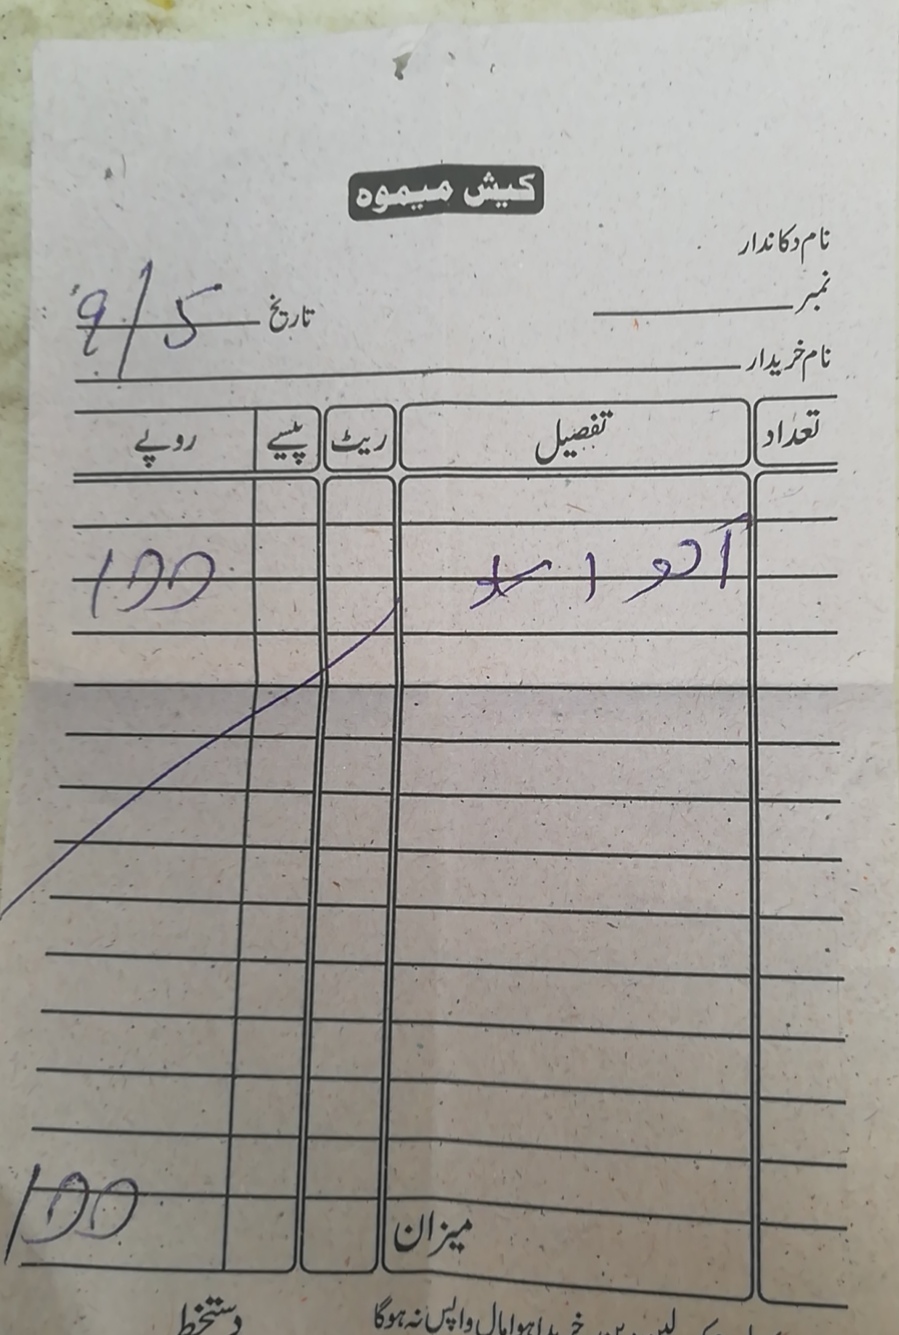 کیش میموہ
نام دکاندار
نمبر
تاریخ 9/5
نام خریدار
تعداد تفصیل ریٹ پیسے روپے
100
میزان 100
خریدا ہوا مال واپس نہ ہوگا
دستخط